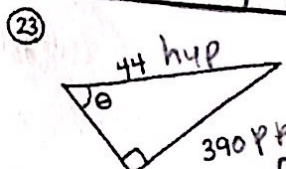 23
44 hyp
θ
39 opp